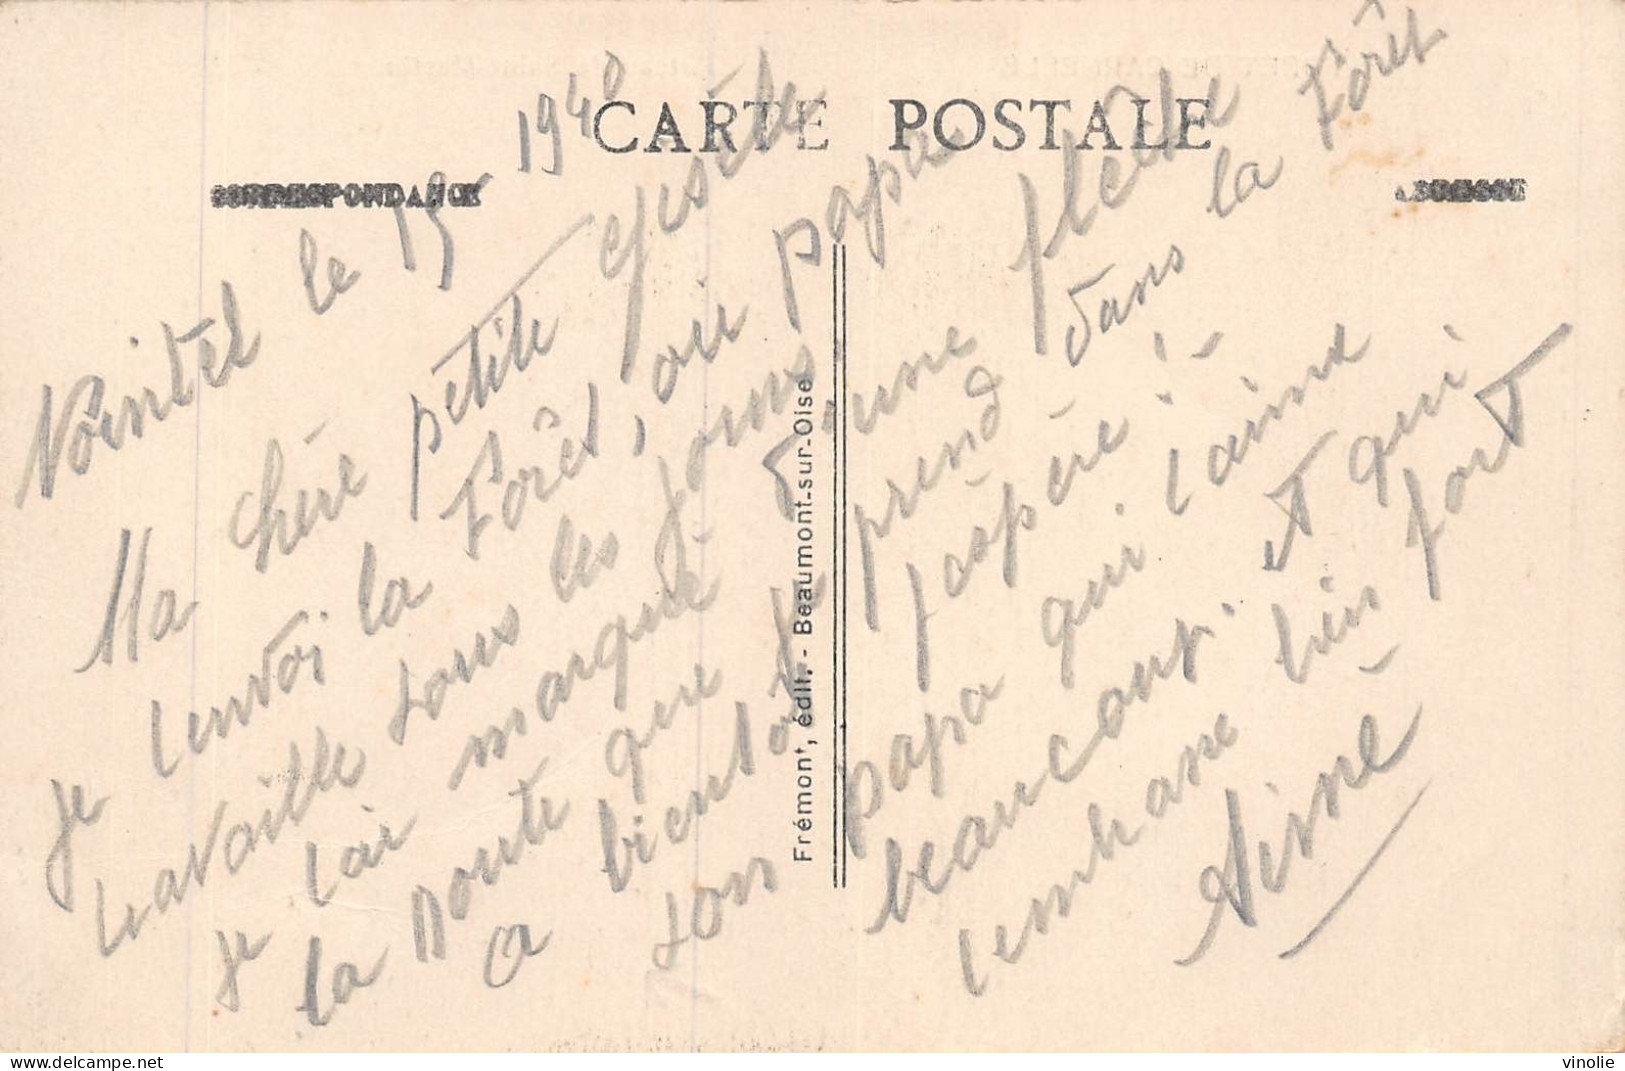 CARTE POSTALE
CORRESPONDANCE
ADRESSE
Nointel le 19 - 1940
Ma chère petite Gisèle
je tenvoi la Forêt, où papa
travaille tous les jours
je tai marqué d'une flèche
la route que je prend dans la Forêt
a bientot jespère! -
ton papa qui taime
beaucoup. et qui
tembrasse bien fort
Aimé
Frémont, édit. - Beaumont-sur-Oise
delcampe.net
vinolie